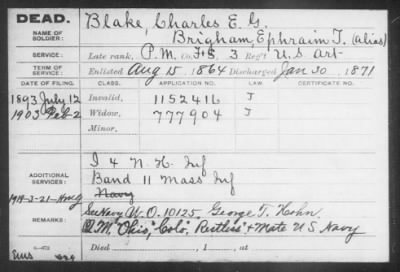 DEAD.
NAME OF SOLDIER:
Blake, Charles E. G.
Brigham, Ephraim T. (alias)
SERVICE:
Late rank, P.M. Co. F&S, 3 Reg't U.S. Art
TERM OF SERVICE:
Enlisted Aug 15, 1864 Discharged Jan 30, 1871
DATE OF FILING. CLASS. APPLICATION NO. LAW. CERTIFICATE NO.
1893 July 12 Invalid, 1152416 J
1903 Feb-2 Widow, 777904 J
Minor,
ADDITIONAL SERVICES:
I 4 N. H. Inf
Band 11 Mass Inf
Navy
REMARKS:
See Navy W.O. 10125. George T. Hohn
Q.M. "Ohio," Colo', Restless' & Mate U S Navy
Died , 1 , at